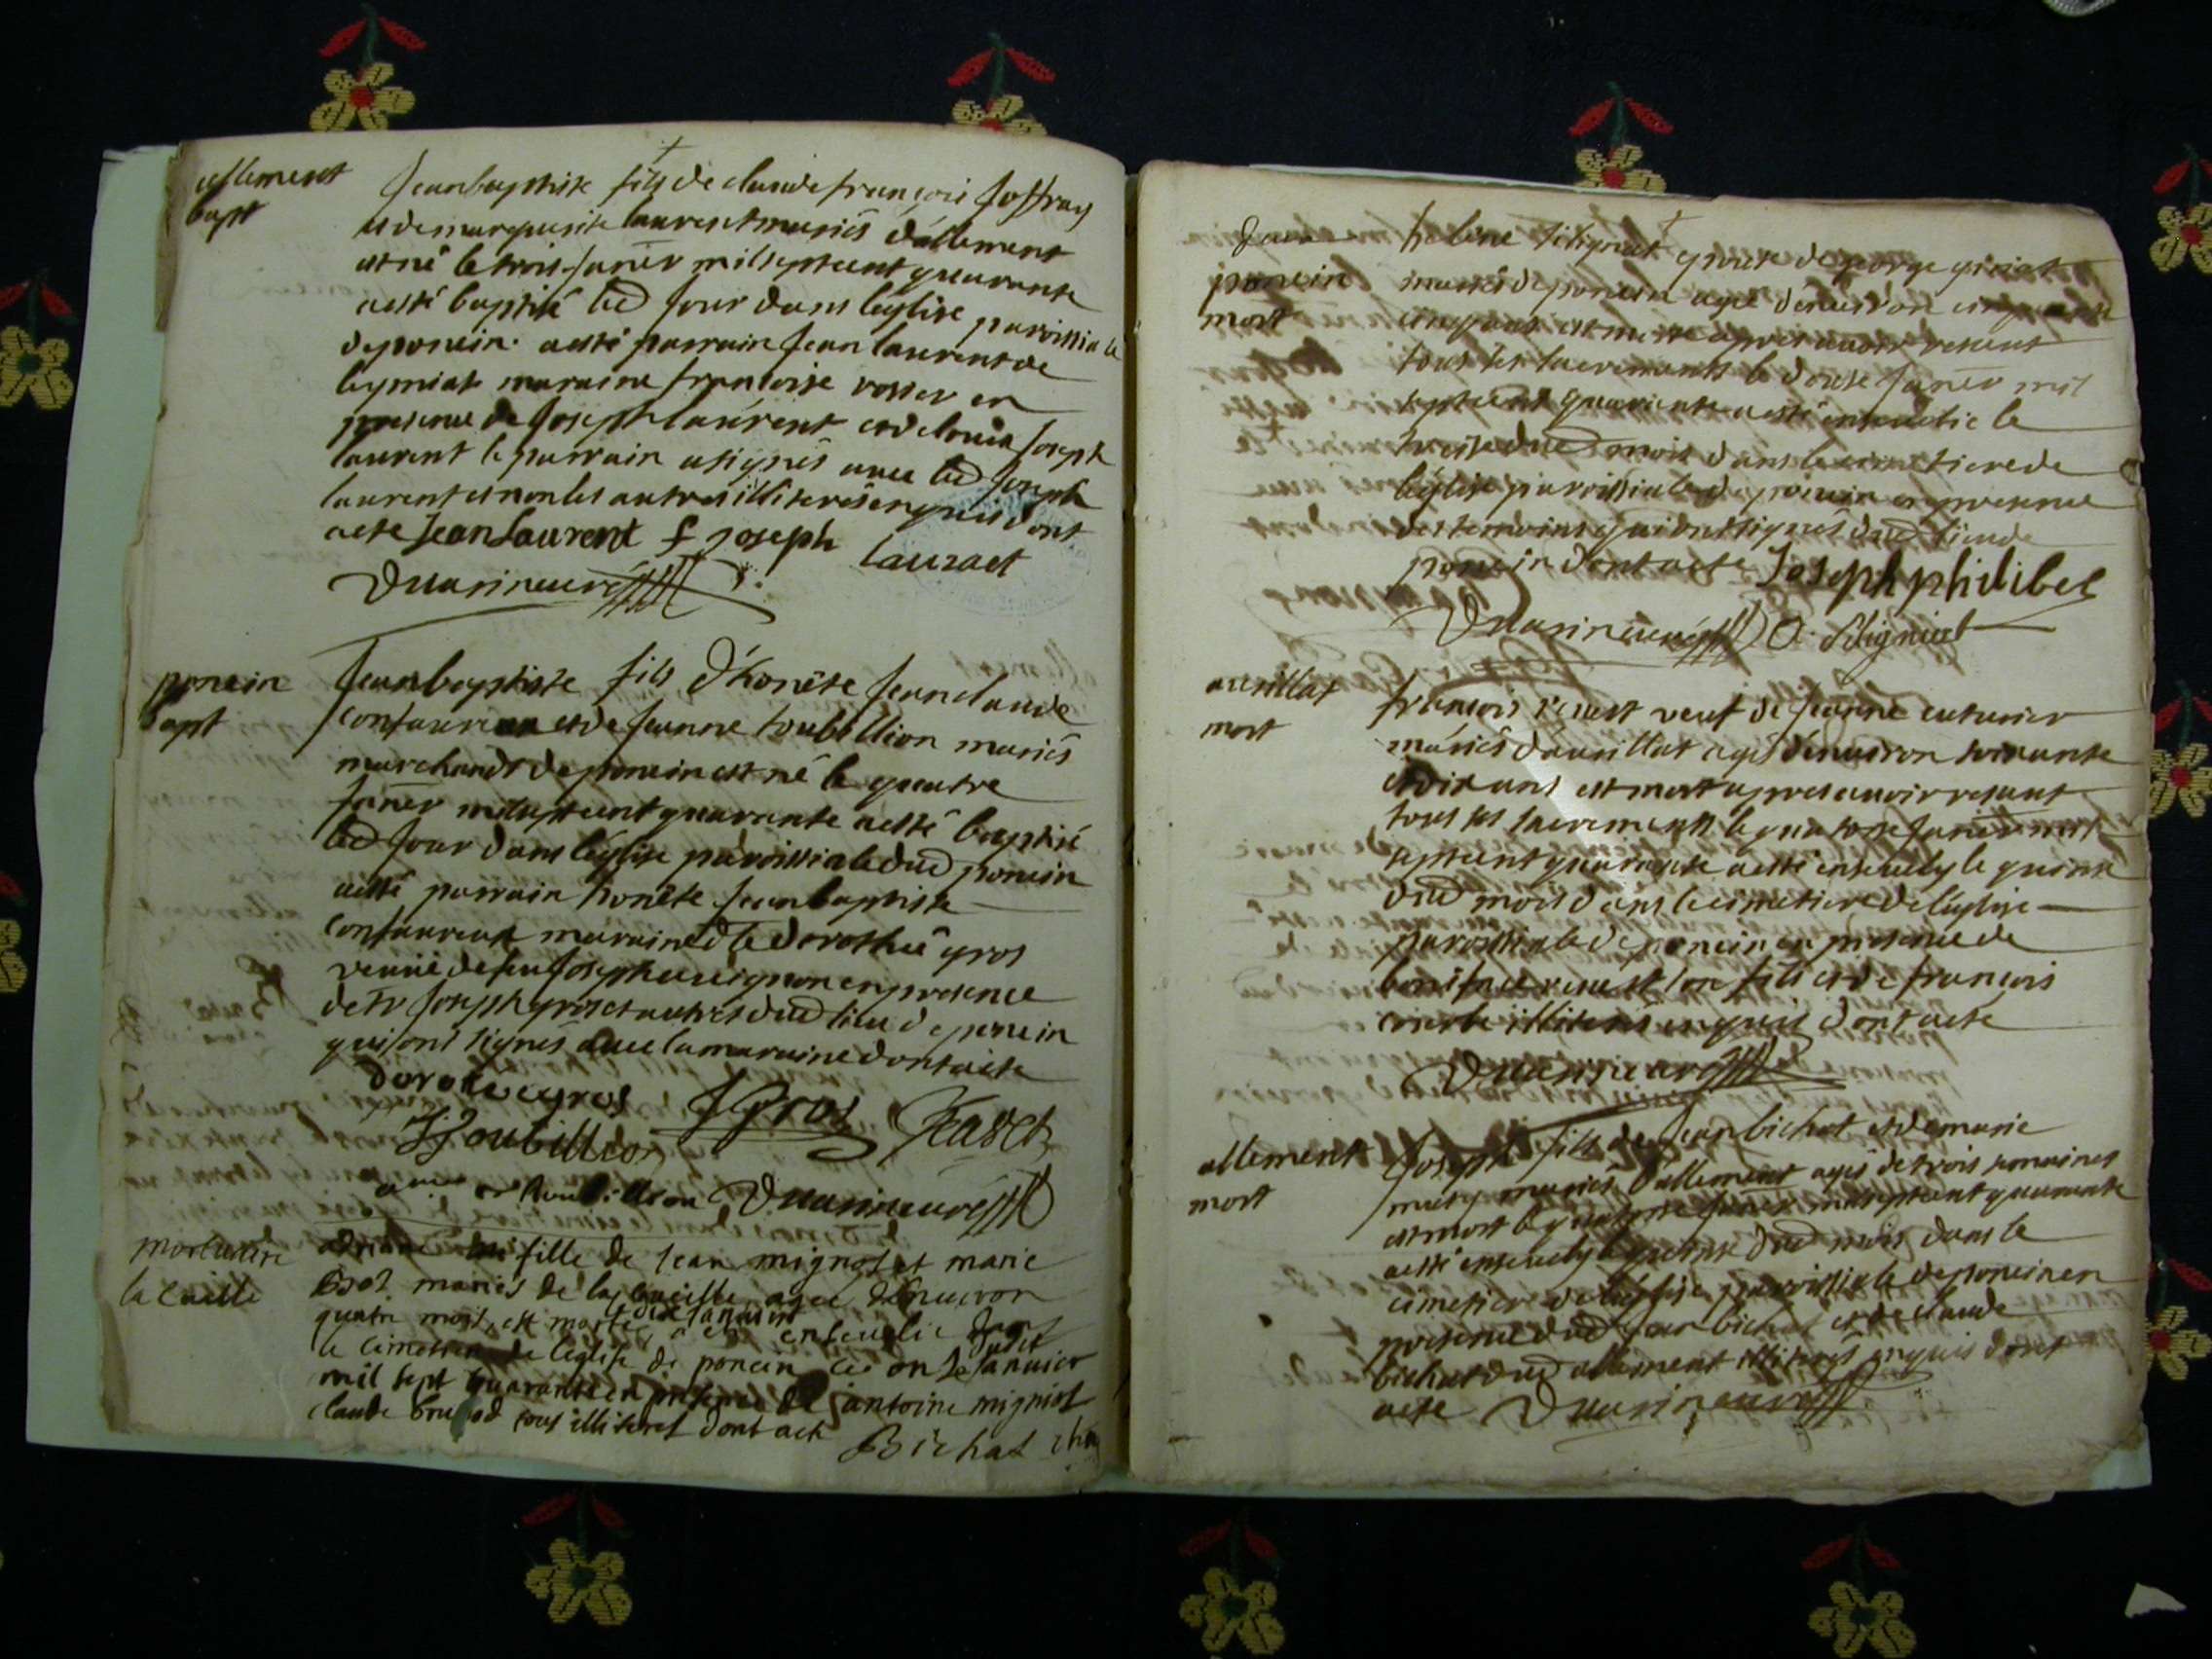 allement
bapt
Jeanbaptiste fils de claude françois Joffray
et de marguerite laurent mariés d'allement
est né le trois Janer mil sept cent quarante
a esté baptisé led Jour dans l'eglise parroissialle
de poncin. a esté parrain Jean laurent de
leymiat maraine françoise rosser en
presence de Joseph laurent et de louis Joseph
laurent le parrain a signés avec led Joseph
laurent et non les autres illiterés enquis dont
acte Jean Laurent f Joseph
Laurant
poncin
bapt
Jeanbaptiste fils d'honête Jean claude
et de Jeanne toubillion mariés
marchands de poncin est né le quatre
Janer mil sept cent quarante a esté baptisé
led Jour dans l'église parroissiale dud poncin
a esté parrain honête Jean baptiste
maraine dlle dorothée gros
veuve de feu Joseph en presence
de sr Joseph gros et autres dud lieu de poncin
qui ont signés avec la maraine dont acte
dorothe gros J Gros
mortuaire
la cueille
fille de Jean mignot et marie
mariés de la cueille agee d'enuiron
quatre mois, est morte le dix Januier
a eté enseuelie dans
le cimetiere de l'eglise de poncin ce onze Januier
mil sept quarante en presence de antoine migniot
claude tous illiterés dont acte
Bichat
poncin
mort
epouse de george
mariés de poncin agee d'enuiron
ans est morte apres auoir receut
tous les sacrements le douse Janer mil
sept cent quarante a esté enseuelie le
treise dud mois dans le cimetiere de
l'église parroissiale de poncin en presence
des temoins qui ont signés dud lieu de
poncin dont acte Joseph philibert
mort
françois veuf de Jeanne cuturier
mariés agé d'enuiron soixante
et dix ans est mort apres auoir receut
tous ses sacrements le quatorse Janer mil
sept cent quarante a esté enseuely le quinse
dud mois dans le cimetiere de l'eglise
parroissiale de poncin en presence de
boniface son fils et de françois
illiterés enquis dont acte
allement
mort
Joseph fils de Jean bichat et de marie
mariés d'allement agé de trois semaines
est mort le quatorse Janer mil sept cent quarante
a esté enseuely le quinse dud mois dans le
cimetiere de l'église parroissiale de poncin en
presence dud Jean bichat et de claude
bichat dud allement illiterés enquis dont
acte